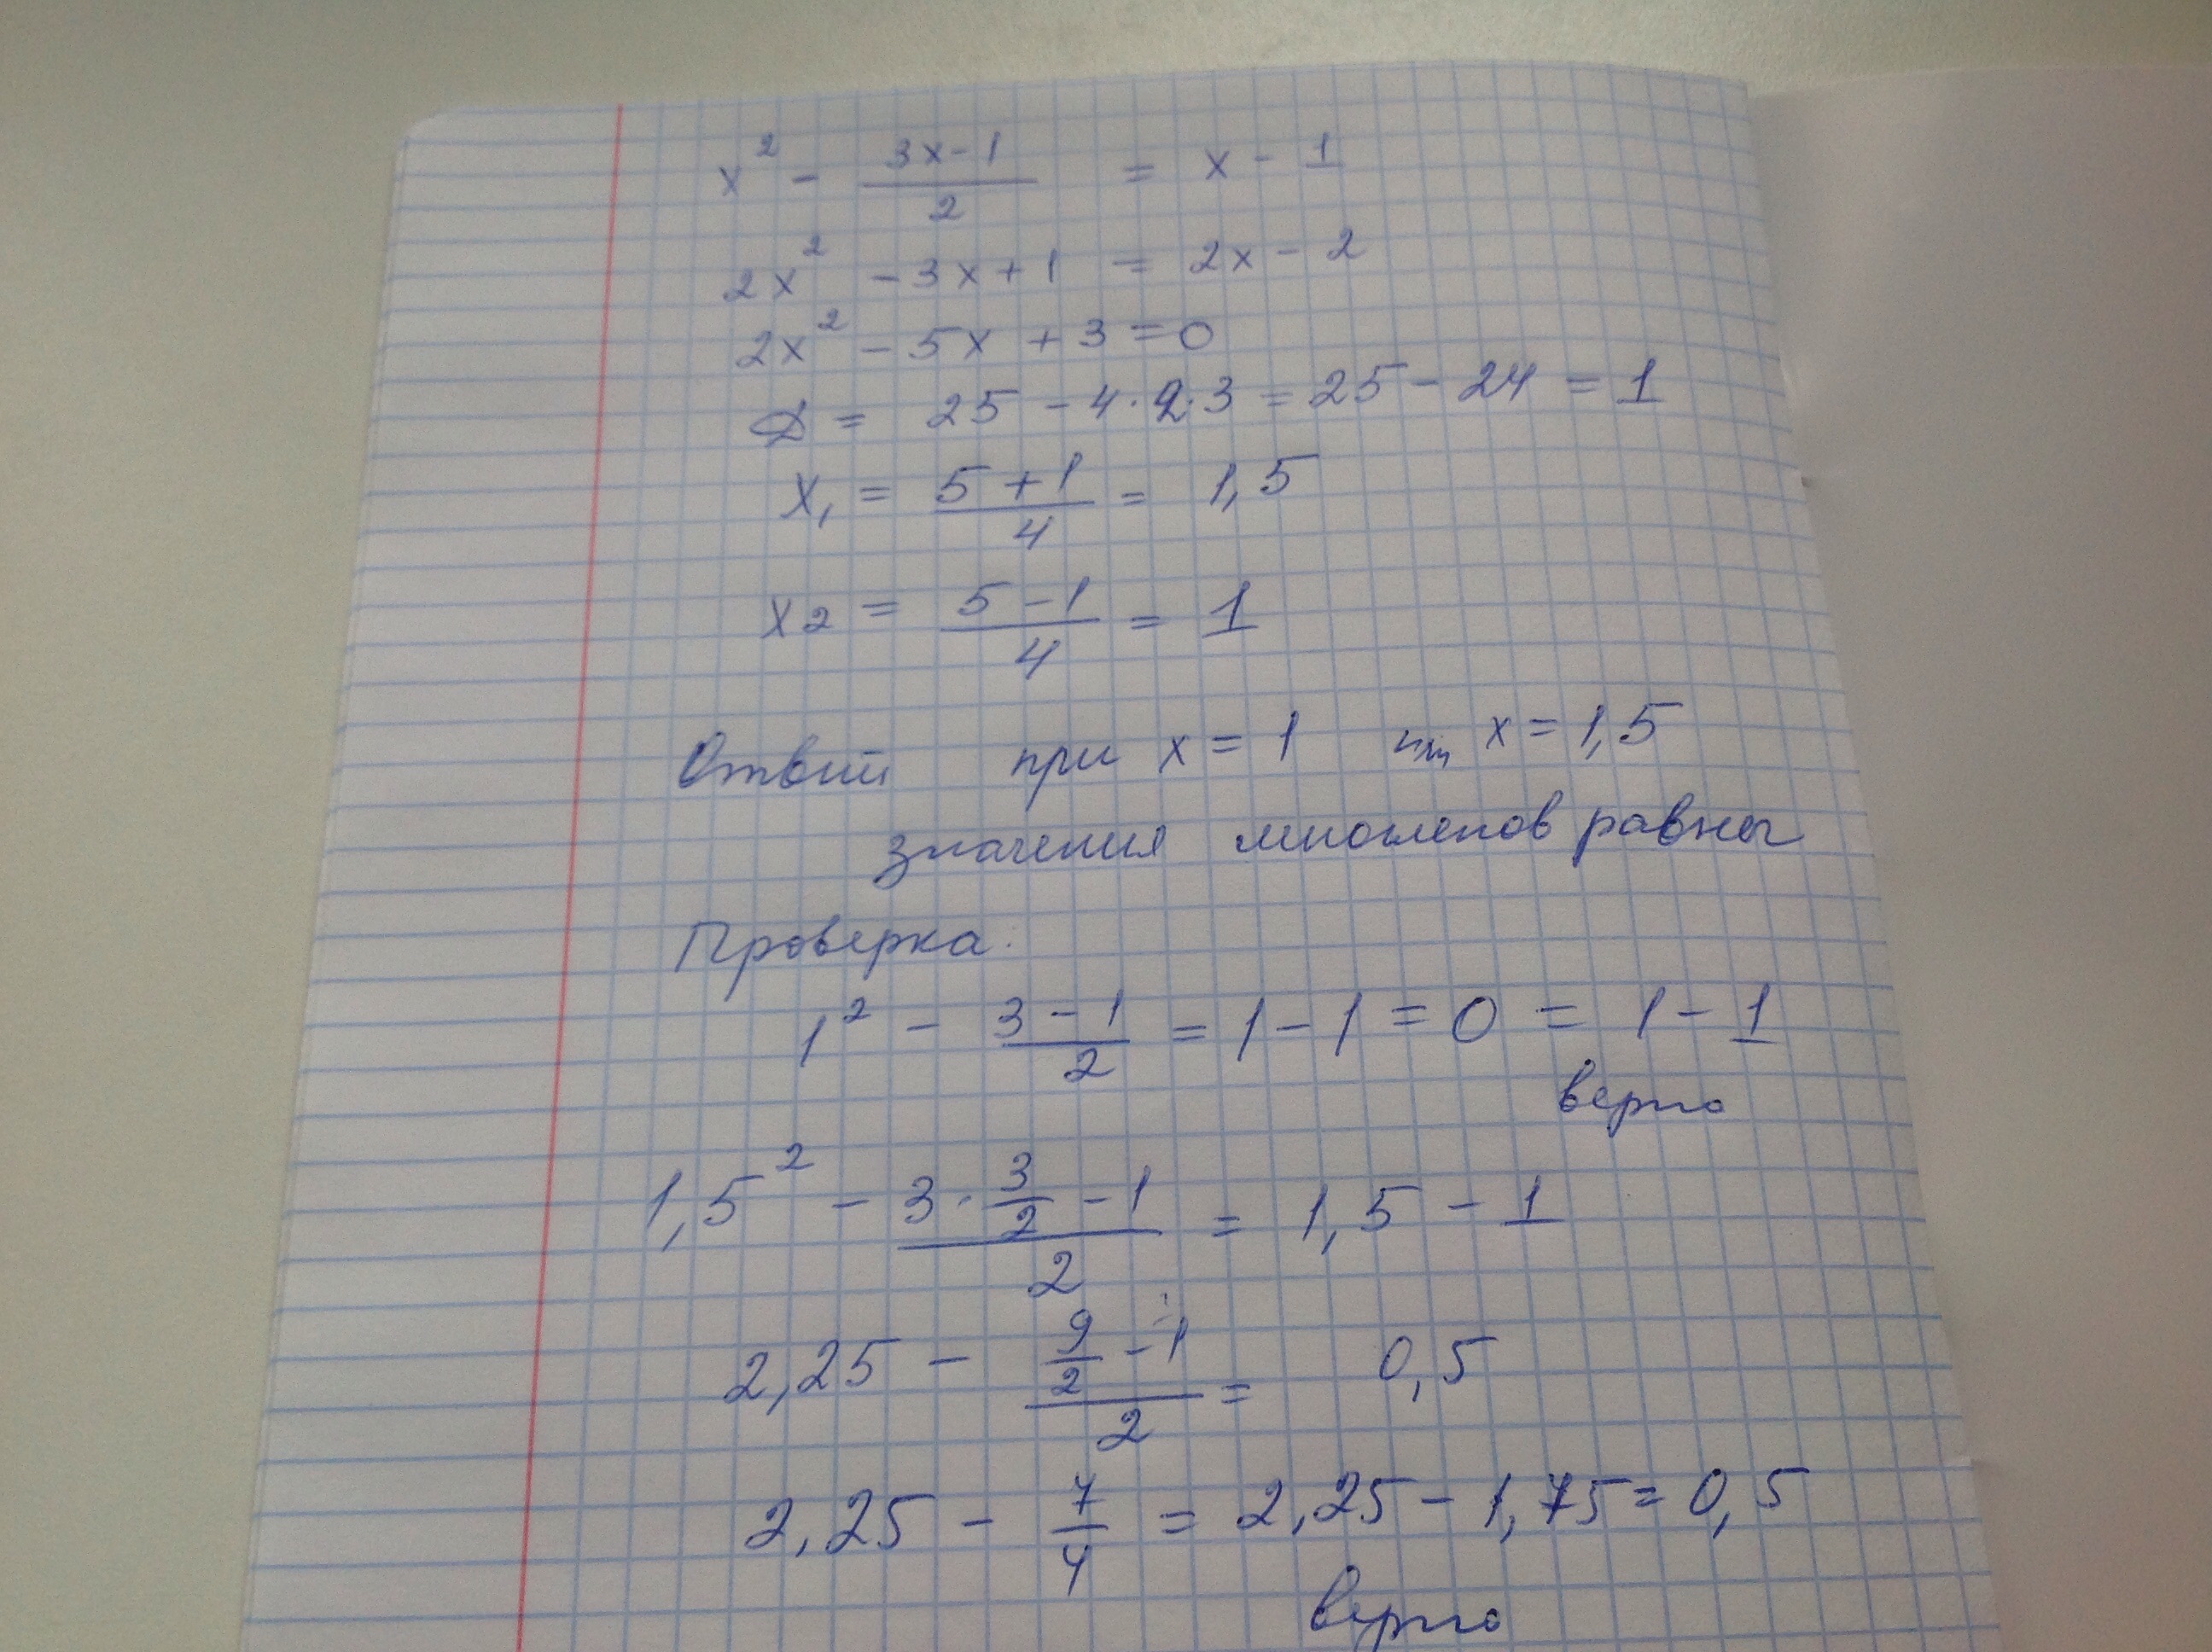 x² - (3x-1)/2 = x - 1
2x² - 3x + 1 = 2x - 2
2x² - 5x + 3 = 0
D = 25 - 4·2·3 = 25 - 24 = 1
x₁ = (5+1)/4 = 1,5
x2 = (5-1)/4 = 1
Ответ при x = 1 или x = 1,5
значения многочленов равны
Проверка:
1² - (3-1)/2 = 1 - 1 = 0 = 1 - 1
верно
1,5² - (3·3/2 - 1)/2 = 1,5 - 1
2,25 - (9/2 - 1)/2 = 0,5
2,25 - 7/4 = 2,25 - 1,75 = 0,5
верно